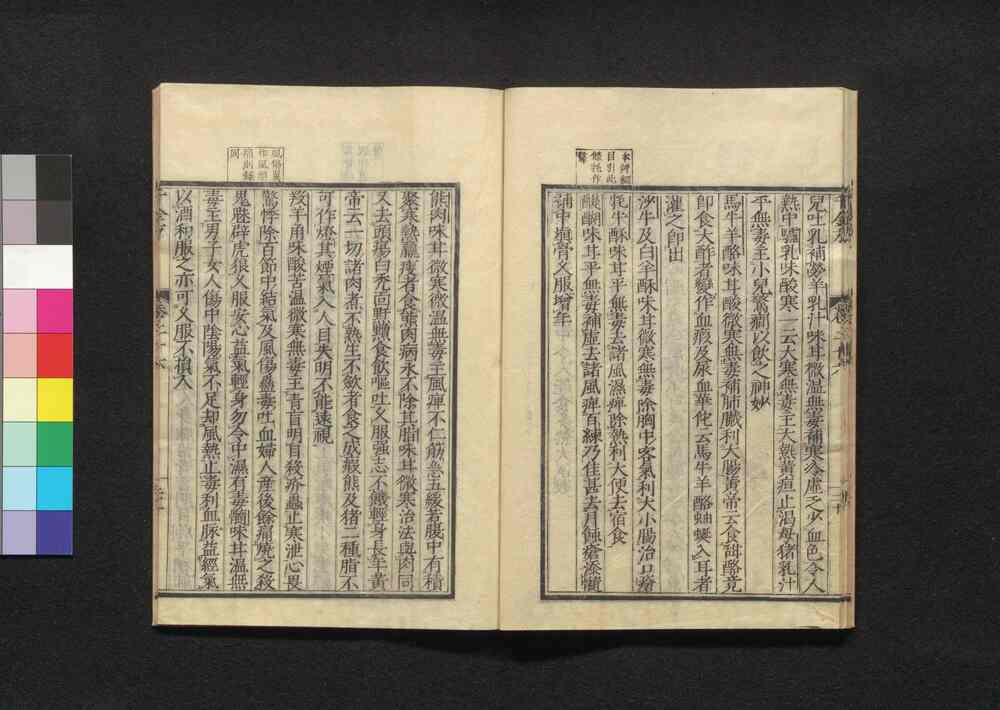 兒吐乳補勞羊乳汁味甘微溫無毒補寒冷虛乏少血色令人
熱中驢乳味酸寒一云大寒無毒主大熱黃疸止渴母豬乳汁
平無毒主小兒驚癇以飲之神妙
馬牛羊酪味甘酸微寒無毒補肺臟利大腸黃帝云食甜酪竟
即食大酢者變作血瘕及尿血華佗云馬牛羊酪蚰蜒入耳者
灌之即出
沙牛及白羊酥味甘微寒無毒除胸中客氣利大小腸治口瘡
牦牛酥味甘平無毒去諸風濕痺除熱利大便去宿食
醍醐味甘平無毒補虛去諸風痺百練乃佳甚去月蝕瘡添髓
補中填骨久服增年
本綱
目引此
作
熊肉味甘微寒微溫無毒主風痺不仁筋急五緩若腹中有積
聚寒熱羸瘦者食熊肉病永不除其脂味甘微寒治法與肉同
又去頭瘍白禿面䵟䵳食飲嘔吐久服強志不飢輕身長年黃
帝云一切諸肉煮不熟生不斂者食之成瘕熊及猪二種脂不
可作燈其煙氣入人目失明不能遠視
羖羊角味酸苦溫微寒無毒主青盲明目殺疥蟲止寒泄心畏
驚悸除百節中結氣及風傷蠱毒吐血婦人產後餘痛燒之殺
鬼魅辟虎狼久服安心益氣輕身勿令中濕有毒髓味甘溫無
毒主男子女人傷中陰陽氣不足却風熱止毒利血脉益經氣
以酒和服之亦可久服不損人